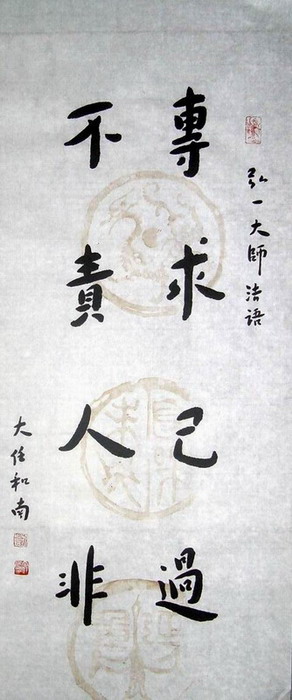 弘一大師法語
專求己過
不責人非
大任和南